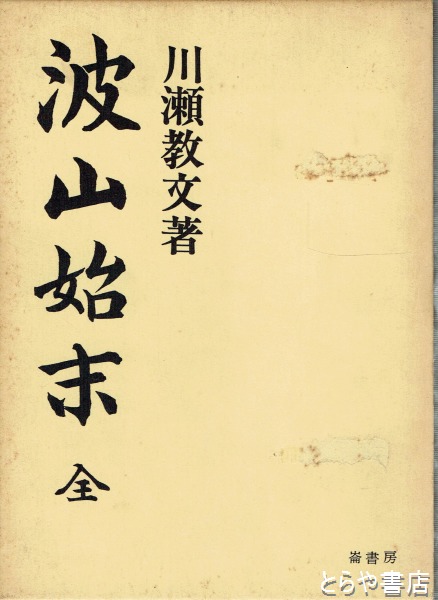 川瀬教文著
波山始末 全
崙書房
とらや書店